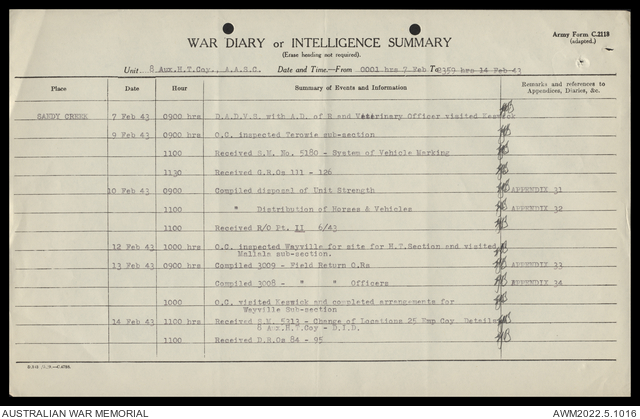 Army Form C.2118
(adapted.)
WAR DIARY or INTELLIGENCE SUMMARY
(Erase heading not required).
Unit 8 Aux.H.T.Coy., A.A.S.C. Date and Time—From 0001 hrs 7 Feb To 2359 hrs 14 Feb 43
Place Date Hour Summary of Events and Information Remarks and references to Appendices, Diaries, &c.
SANDY CREEK 7 Feb 43 0900 hrs D.A.D.V.S. with A.D. of H and Veterinary Officer visited Keswick
9 Feb 43 0900 hrs O.C. inspected Terowie sub-section
1100 Received S.M. No. 5180 - System of Vehicle Marking
1130 Received G.R.Os 111 - 126
10 Feb 43 0900 Compiled disposal of Unit Strength APPENDIX 31
1100 " Distribution of Horses & Vehicles APPENDIX 32
1100 Received R/O Pt. II 6/43
12 Feb 43 1000 hrs O.C. inspected Wayville for site for H.T.Section and visited
Mallala sub-section.
13 Feb 43 0900 hrs Compiled 3009 - Field Return O.Rs APPENDIX 33
Compiled 3008 - " " Officers APPENDIX 34
1000 O.C. visited Keswick and completed arrangements for
Wayville Sub-section
14 Feb 43 1100 hrs Received S.M. 5313 - Change of Locations 25 Emp Coy Details
8 Aux.H.T.Coy - D.I.D.
1100 Received D.R.Os 84 - 95
AUSTRALIAN WAR MEMORIAL AWM2022.5.1016